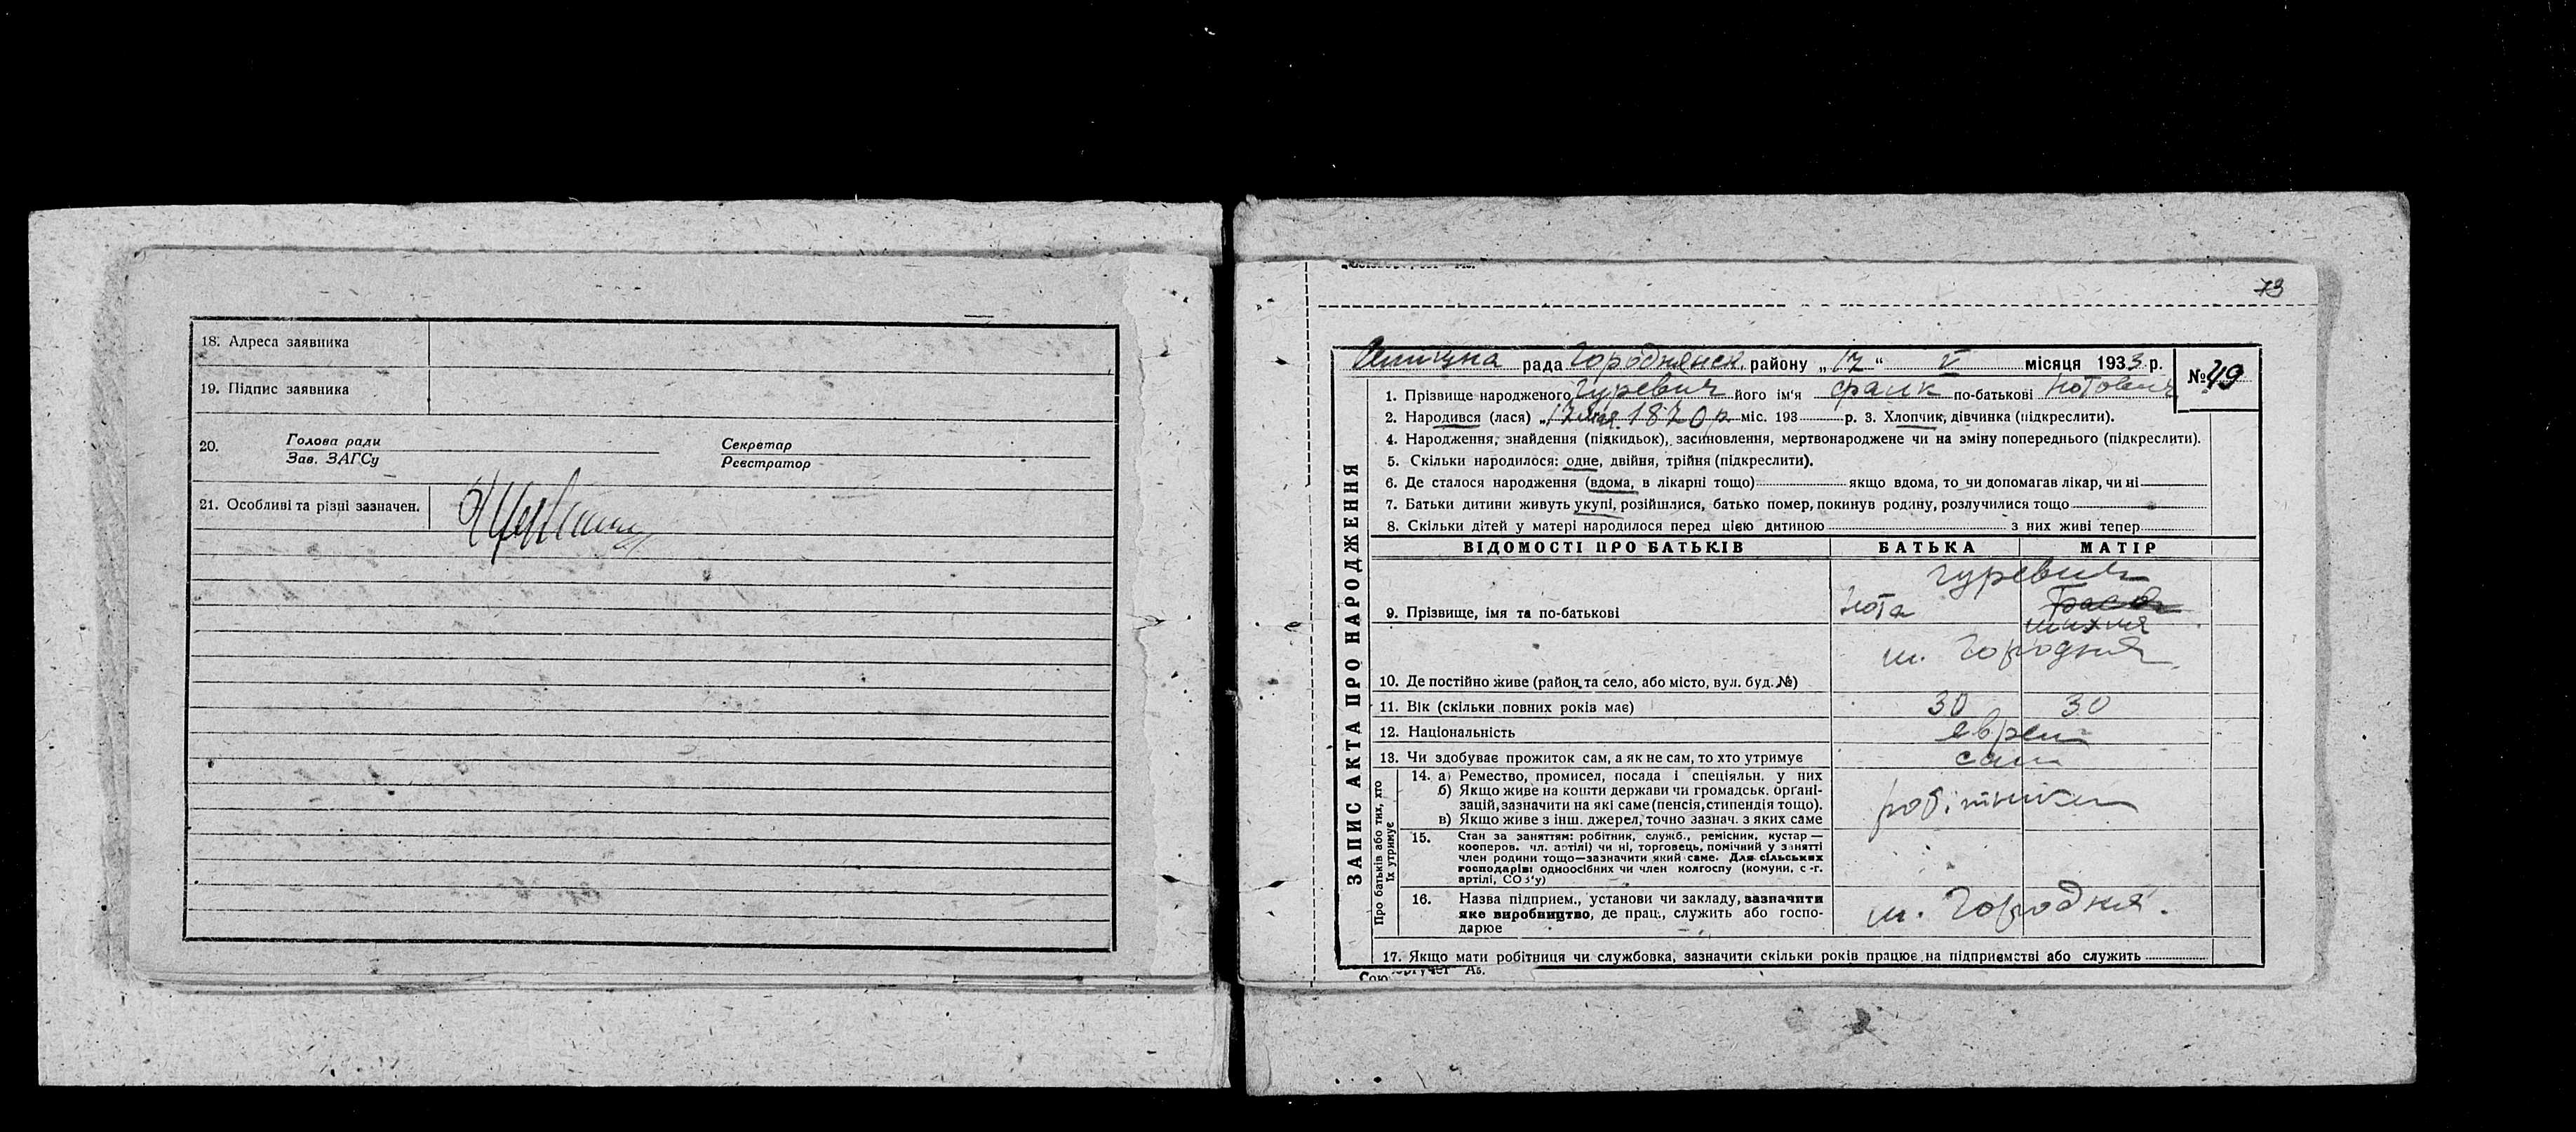 18. Адреса заявника
19. Підпис заявника
20. Голова ради Секретар
Зав. ЗАГСу Реєстратор
21. Особливі та різні зазначен.
73
рада Городнянськ. району „17“ V місяця 1933 р.
№ 49
ЗАПИС АКТА ПРО НАРОДЖЕННЯ
1. Прізвище народженого Гуревич його ім'я Фаик по-батькові Нотович
2. Народився (лася) „17 мая 1870 р. міс. 193 р. 3. Хлопчик, дівчинка (підкреслити).
4. Народження, знайдення (підкидьок), засиновлення, мертвонароджене чи на зміну попереднього (підкреслити).
5. Скільки народилося: одне, двійня, трійня (підкреслити).
6. Де сталося народження (вдома, в лікарні тощо) якщо вдома, то чи допомагав лікар, чи ні
7. Батьки дитини живуть укупі, розійшлися, батько помер, покинув родину, розлучилися тощо
8. Скільки дітей у матері народилося перед цією дитиною з них живі тепер
ВІДОМОСТІ ПРО БАТЬКІВ БАТЬКА МАТІР
Гуревич
9. Прізвище, імя та по-батькові Нота
м. Городня
10. Де постійно живе (район та село, або місто, вул. буд. №)
11. Вік (скільки повних років має) 30 30
12. Національність еврей
13. Чи здобуває прожиток сам, а як не сам, то хто утримує сам
Про батьків або тих, хто їх утримує
14. а) Ремество, промисел, посада і спеціяльн. у них
б) Якщо живе на кошти держави чи громадськ. органі-
зацій, зазначити на які саме (пенсія, стипендія тощо).
в) Якщо живе з інш. джерел, точно зазнач. з яких саме
робітники
15. Стан за заняттям: робітник, служб., ремісник, кустар —
кооперов. чл. артілі) чи ні, торговець, помічний у занятті
член родини тощо—зазначити який саме. Для сільських
господарів: одноосібних чи член колгоспу (комуни, с.-г.
артілі, СОЗ'у)
16. Назва підприєм., установи чи закладу, зазначити
яке виробництво, де прац., служить або госпо-
дарює
м. Городня.
17. Якщо мати робітниця чи службовка, зазначити скільки років працює на підприємстві або служить